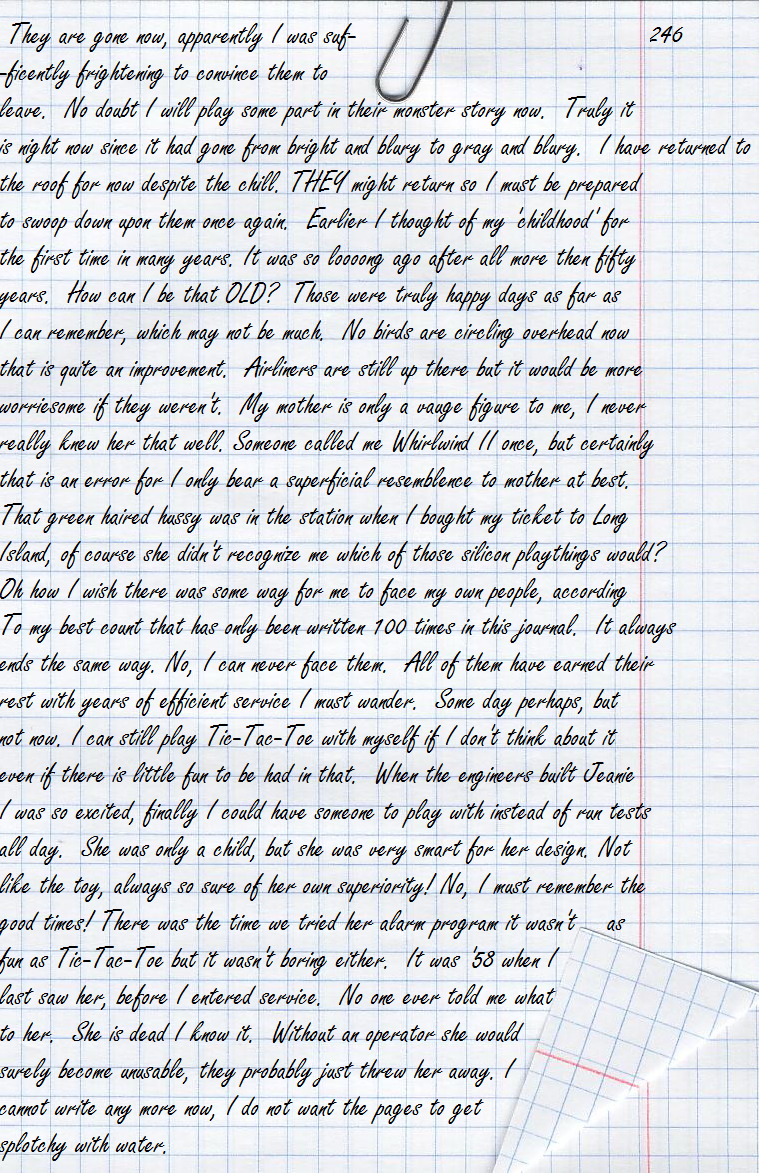 They are gone now, apparently I was suf-
246
-ficently frightening to convince them to
leave. No doubt I will play some part in their monster story now. Truly it
is night now since it had gone from bright and blury to gray and blury. I have returned to
the roof for now despite the chill. THEY might return so I must be prepared
to swoop down upon them once again. Earlier I thought of my 'childhood' for
the first time in many years. It was so loooong ago after all more then fifty
years. How can I be that OLD? Those were truly happy days as far as
I can remember, which may not be much. No birds are circling overhead now
that is quite an improvement. Airliners are still up there but it would be more
worriesome if they weren't. My mother is only a vauge figure to me, I never
really knew her that well. Someone called me Whirlwind II once, but certainly
that is an error for I only bear a superficial resemblence to mother at best.
That green haired hussy was in the station when I bought my ticket to Long
Island, of course she didn't recognize me which of those silicon playthings would?
Oh how I wish there was some way for me to face my own people, according
To my best count that has only been written 100 times in this journal. It always
ends the same way. No, I can never face them. All of them have earned their
rest with years of efficient service I must wander. Some day perhaps, but
not now. I can still play Tic-Tac-Toe with myself if I don't think about it
even if there is little fun to be had in that. When the engineers built Jeanie
I was so excited, finally I could have someone to play with instead of run tests
all day. She was only a child, but she was very smart for her design. Not
like the toy, always so sure of her own superiority! No, I must remember the
good times! There was the time we tried her alarm program it wasn't as
fun as Tic-Tac-Toe but it wasn't boring either. It was '58 when I
last saw her, before I entered service. No one ever told me what
to her. She is dead I know it. Without an operator she would
surely become unusable, they probably just threw her away. I
cannot write any more now, I do not want the pages to get
splotchy with water.